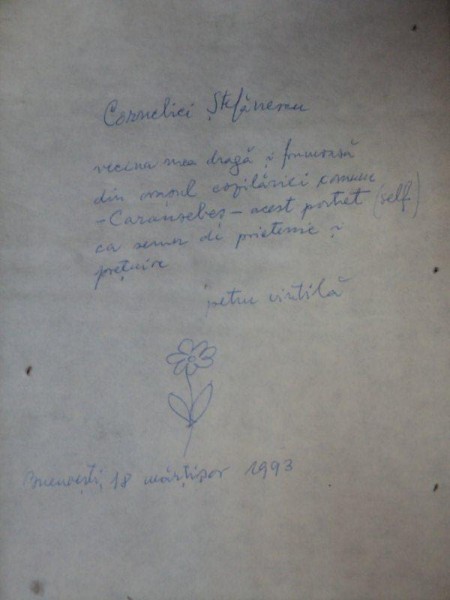 Corneliei Ștefănescu
vecina mea dragă și frumoasă
din orașul copilăriei comune
- Caransebeș - acest portret (self)
ca semn de prietenie și
prețuire
petru vintilă
București, 18 mărțișor 1993